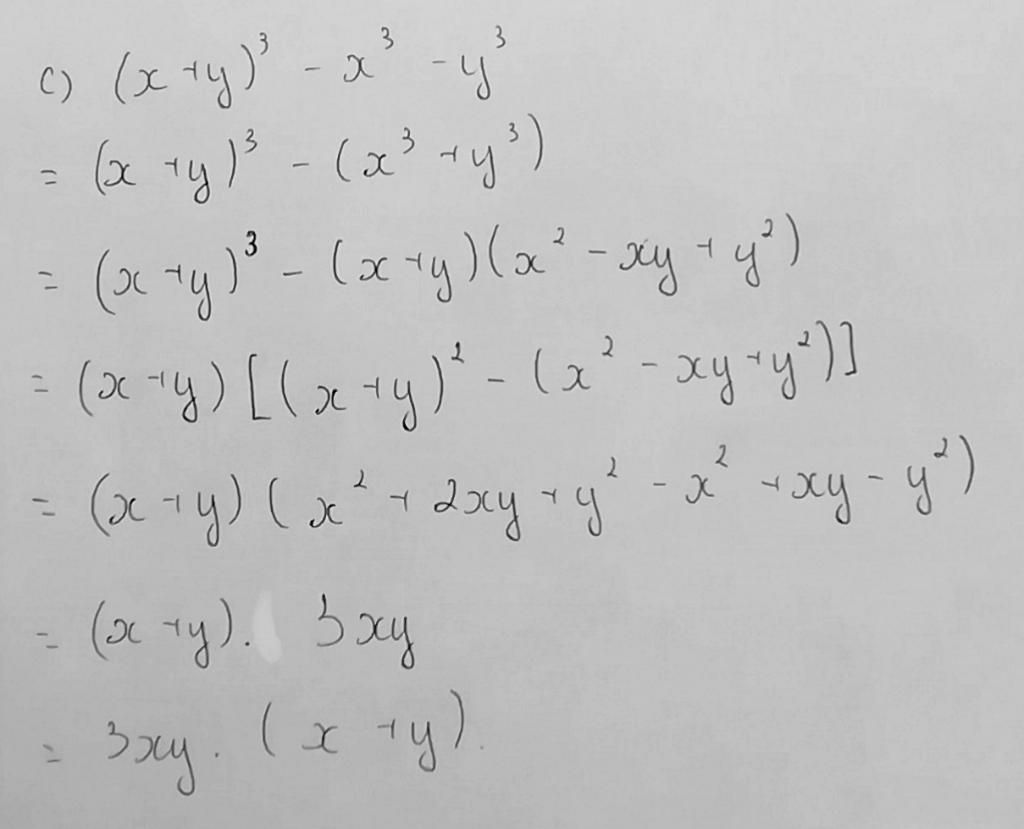 c) (x+y)³ - x³ - y³
= (x+y)³ - (x³ + y³)
= (x+y)³ - (x+y)(x² - xy + y²)
= (x+y)[(x+y)² - (x² - xy + y²)]
= (x+y)(x² + 2xy + y² - x² + xy - y²)
= (x+y). 3xy
= 3xy. (x+y).